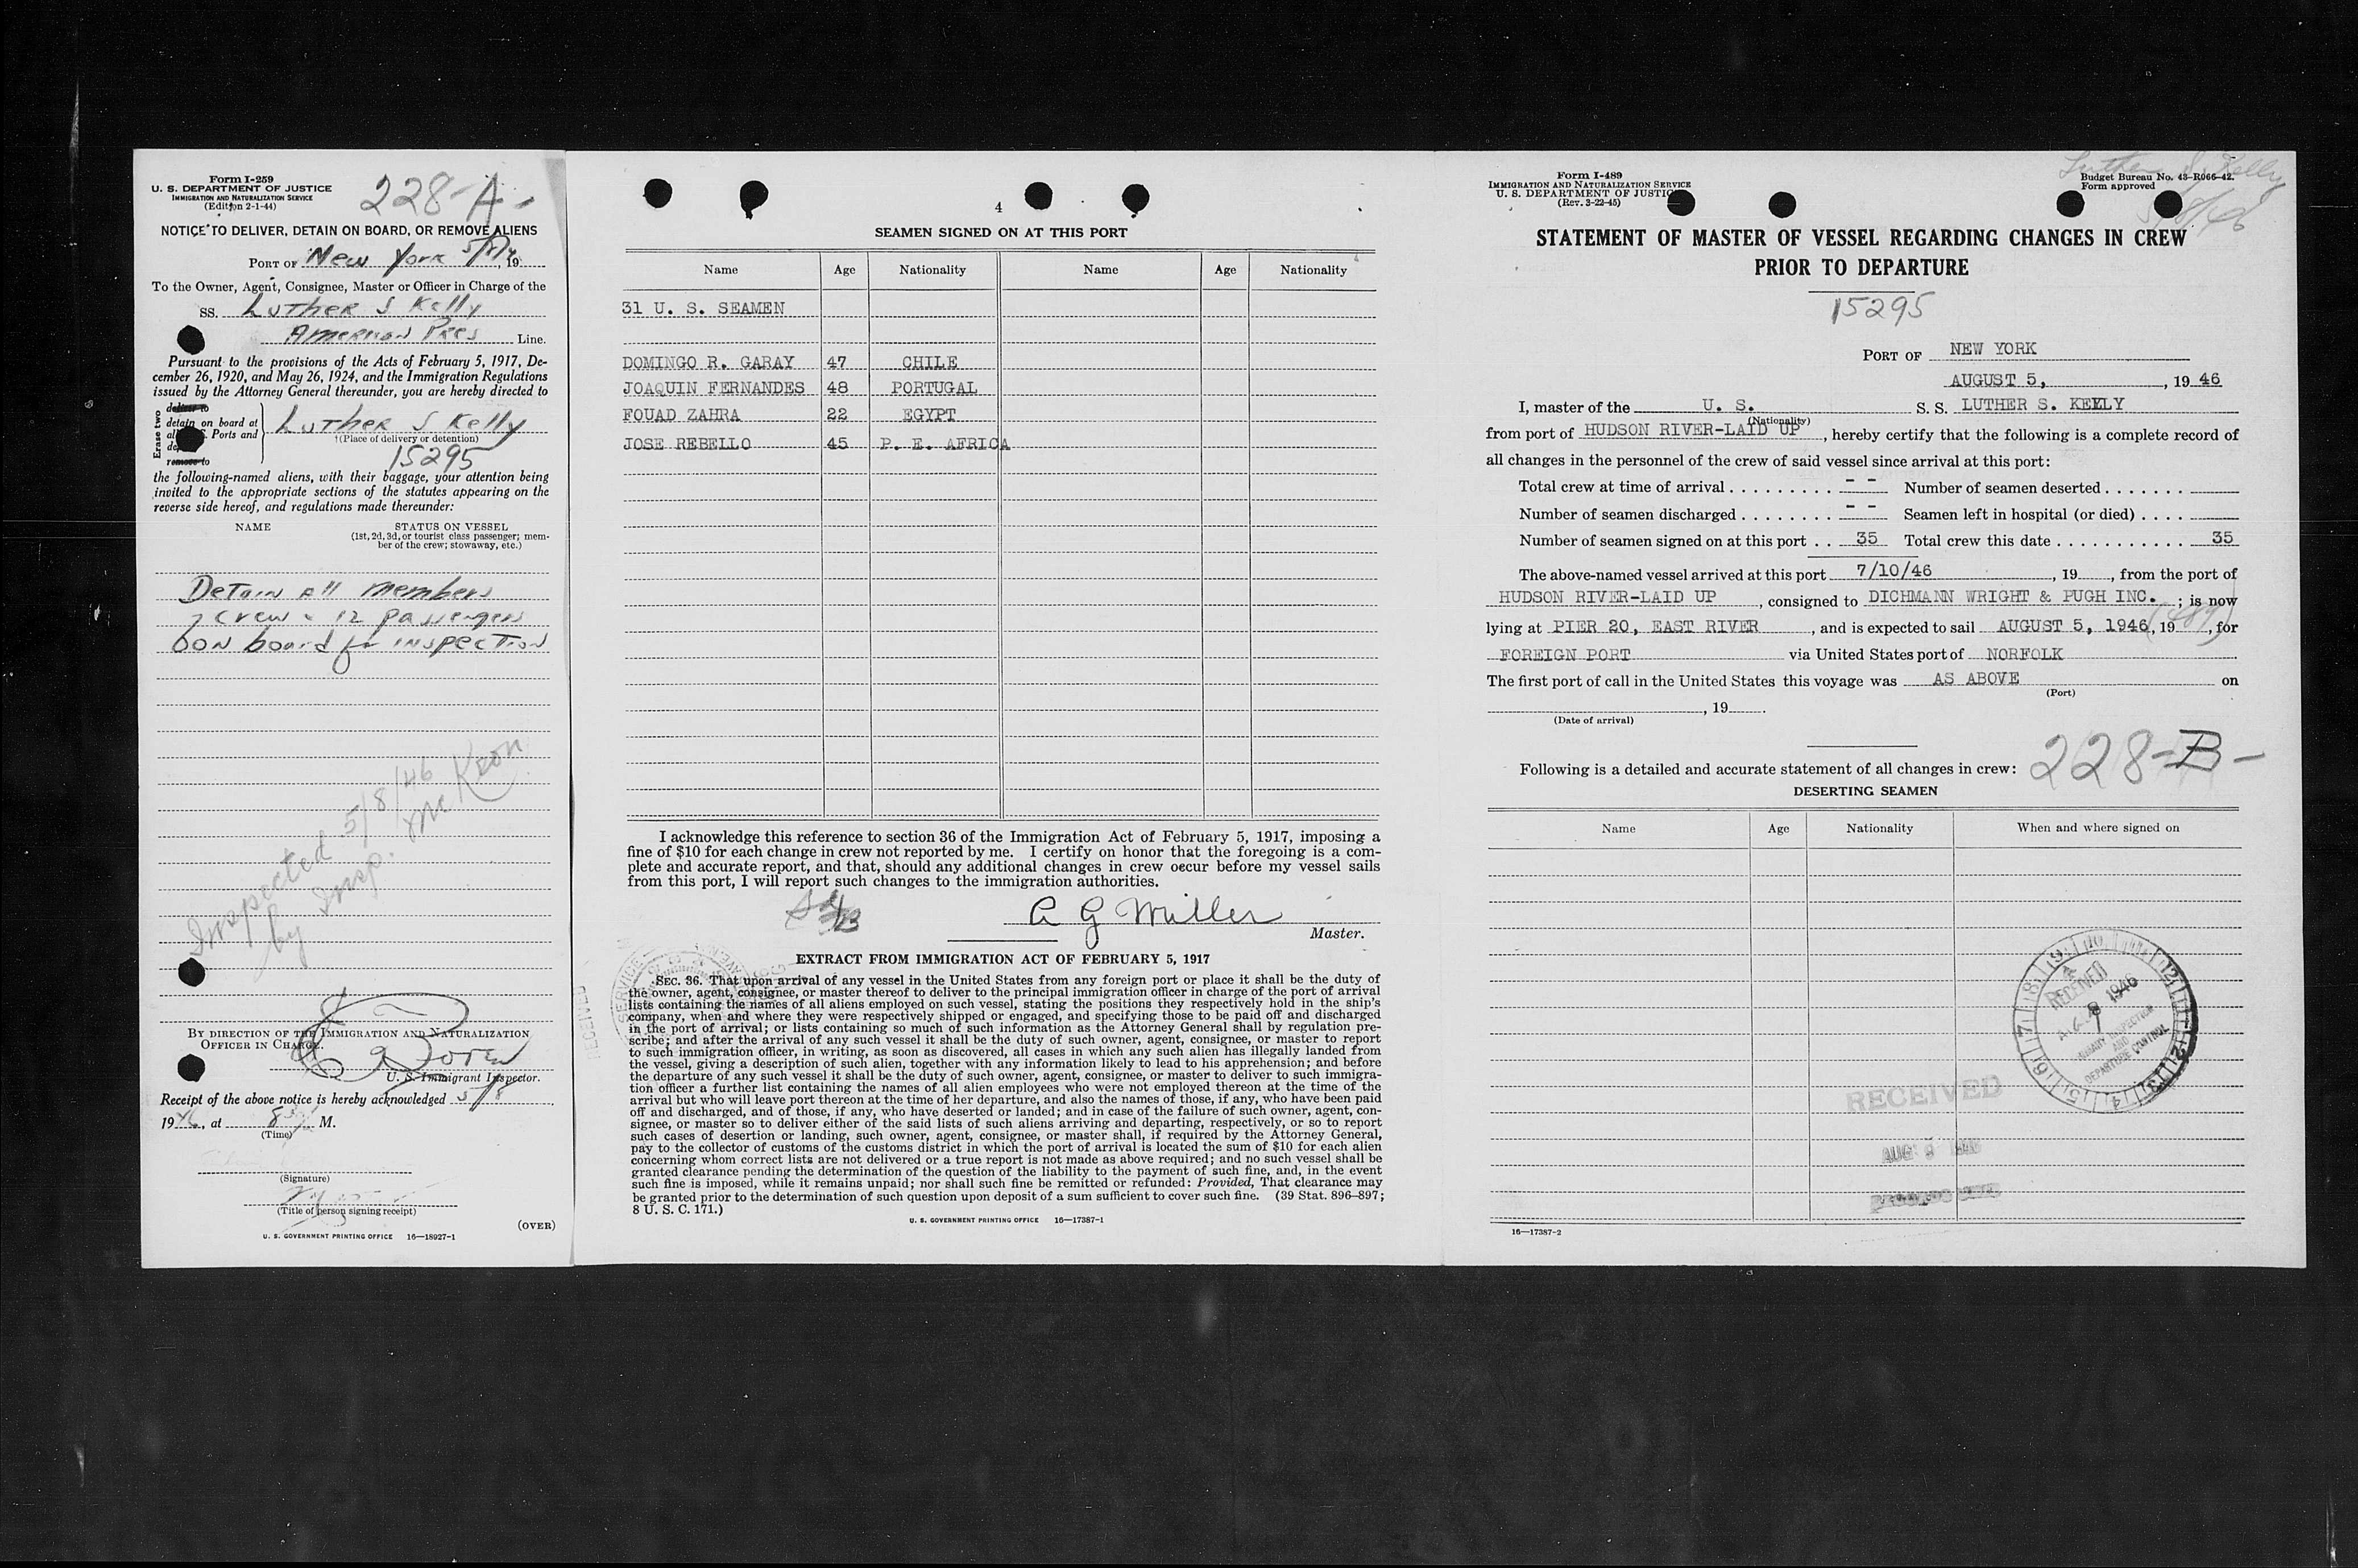 Form I-259
U. S. DEPARTMENT OF JUSTICE
IMMIGRATION AND NATURALIZATION SERVICE
(Edition 2-1-44)
228-A-
NOTICE TO DELIVER, DETAIN ON BOARD, OR REMOVE ALIENS
PORT OF New York 5/ , 19
To the Owner, Agent, Consignee, Master or Officer in Charge of the
SS. Luther S Kelly
American Pres Line.
Pursuant to the provisions of the Acts of February 5, 1917, De-
cember 26, 1920, and May 26, 1924, and the Immigration Regulations
issued by the Attorney General thereunder, you are hereby directed to
Erase two
deliver to
detain on board at
all Ports and
remove to
Luther S Kelly
†(Place of delivery or detention)
15295
the following-named aliens, with their baggage, your attention being
invited to the appropriate sections of the statutes appearing on the
reverse side hereof, and regulations made thereunder:
NAME STATUS ON VESSEL
(1st, 2d, 3d, or tourist class passenger; mem-
ber of the crew; stowaway, etc.)
Detain all members
crew & 12 passengers
on board for inspection
Inspected 5/8/46
by Insp. McKeon
BY DIRECTION OF THE IMMIGRATION AND NATURALIZATION
OFFICER IN CHARGE.
U. S. Immigrant Inspector.
Receipt of the above notice is hereby acknowledged 5/8
1946, at 8 M.
(Time)
(Signature)
(Title of person signing receipt)
(OVER)
U. S. GOVERNMENT PRINTING OFFICE 16—18927-1
4
SEAMEN SIGNED ON AT THIS PORT
Name Age Nationality Name Age Nationality
31 U. S. SEAMEN
DOMINGO R. GARAY 47 CHILE
JOAQUIN FERNANDES 48 PORTUGAL
FOUAD ZAHRA 22 EGYPT
JOSE REBELLO 45 P. E. AFRICA
I acknowledge this reference to section 36 of the Immigration Act of February 5, 1917, imposing a
fine of $10 for each change in crew not reported by me. I certify on honor that the foregoing is a com-
plete and accurate report, and that, should any additional changes in crew occur before my vessel sails
from this port, I will report such changes to the immigration authorities.
A G Miller
Master.
EXTRACT FROM IMMIGRATION ACT OF FEBRUARY 5, 1917
SEC. 36. That upon arrival of any vessel in the United States from any foreign port or place it shall be the duty of
the owner, agent, consignee, or master thereof to deliver to the principal immigration officer in charge of the port of arrival
lists containing the names of all aliens employed on such vessel, stating the positions they respectively hold in the ship's
company, when and where they were respectively shipped or engaged, and specifying those to be paid off and discharged
in the port of arrival; or lists containing so much of such information as the Attorney General shall by regulation pre-
scribe; and after the arrival of any such vessel it shall be the duty of such owner, agent, consignee, or master to report
to such immigration officer, in writing, as soon as discovered, all cases in which any such alien has illegally landed from
the vessel, giving a description of such alien, together with any information likely to lead to his apprehension; and before
the departure of any such vessel it shall be the duty of such owner, agent, consignee, or master to deliver to such immigra-
tion officer a further list containing the names of all alien employees who were not employed thereon at the time of the
arrival but who will leave port thereon at the time of her departure, and also the names of those, if any, who have been paid
off and discharged, and of those, if any, who have deserted or landed; and in case of the failure of such owner, agent, con-
signee, or master so to deliver either of the said lists of such aliens arriving and departing, respectively, or so to report
such cases of desertion or landing, such owner, agent, consignee, or master shall, if required by the Attorney General,
pay to the collector of customs of the customs district in which the port of arrival is located the sum of $10 for each alien
concerning whom correct lists are not delivered or a true report is not made as above required; and no such vessel shall be
granted clearance pending the determination of the question of the liability to the payment of such fine, and, in the event
such fine is imposed, while it remains unpaid; nor shall such fine be remitted or refunded: Provided, That clearance may
be granted prior to the determination of such question upon deposit of a sum sufficient to cover such fine. (39 Stat. 896–897;
8 U. S. C. 171.)
U. S. GOVERNMENT PRINTING OFFICE 16—17387-1
Form I-489
IMMIGRATION AND NATURALIZATION SERVICE
U. S. DEPARTMENT OF JUSTICE
(Rev. 3-22-45)
Luther S Kelly
Budget Bureau No. 43-R066-42.
Form approved
STATEMENT OF MASTER OF VESSEL REGARDING CHANGES IN CREW
PRIOR TO DEPARTURE
15295
PORT OF NEW YORK
AUGUST 5, , 19 46
I, master of the U. S. S. S. LUTHER S. KELLY
(Nationality)
from port of HUDSON RIVER-LAID UP , hereby certify that the following is a complete record of
all changes in the personnel of the crew of said vessel since arrival at this port:
Total crew at time of arrival - - Number of seamen deserted
Number of seamen discharged - - Seamen left in hospital (or died)
Number of seamen signed on at this port 35 Total crew this date 35
The above-named vessel arrived at this port 7/10/46 , 19 , from the port of
HUDSON RIVER-LAID UP , consigned to DICHMANN WRIGHT & PUGH INC. ; is now
lying at PIER 20, EAST RIVER , and is expected to sail AUGUST 5, 1946, 19 , for
FOREIGN PORT via United States port of NORFOLK
The first port of call in the United States this voyage was AS ABOVE on
(Port)
, 19 .
(Date of arrival)
Following is a detailed and accurate statement of all changes in crew: 228-B-
DESERTING SEAMEN
Name Age Nationality When and where signed on
RECEIVED
1946
DEPARTURE CONTROL
RECEIVED
AUG
16—17387-2